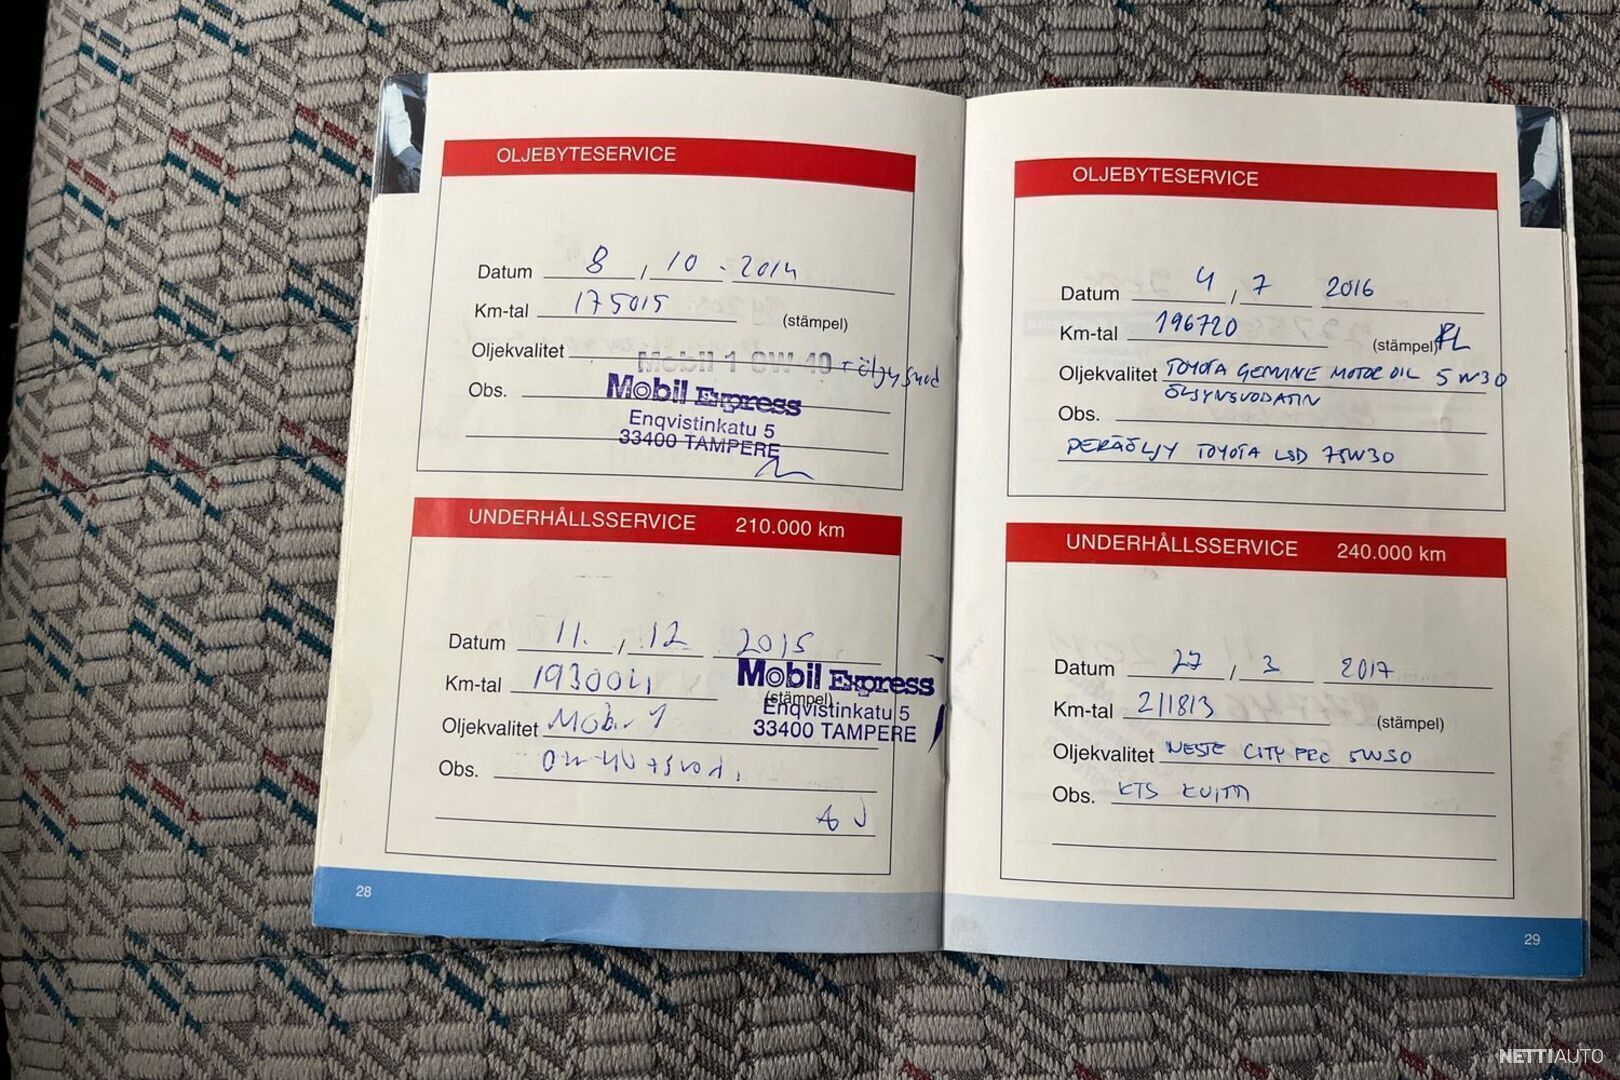 OLJEBYTESERVICE
Datum 8 , 10 . 2014
Km-tal 175015
(stämpel)
Oljekvalitet Mobil 1 0W-40 + öljysuod
Obs.
Mobil Express
Enqvistinkatu 5
33400 TAMPERE
UNDERHÅLLSSERVICE 210.000 km
Datum 11. , 12 2015
Km-tal 193004
Mobil Express
(stämpel)
Enqvistinkatu 5
33400 TAMPERE
Oljekvalitet Mobil 1
Obs.
28
OLJEBYTESERVICE
Datum 4 , 7 2016
Km-tal 196720
(stämpel)
Oljekvalitet TOYOTA GENUINE MOTOR OIL 5W30
ÖLJYNSUODATIN
Obs.
PERÄÖLJY TOYOTA LSD 75W30
UNDERHÅLLSSERVICE 240.000 km
Datum 27 , 3 2017
Km-tal 211813
(stämpel)
Oljekvalitet NESTE CITY PRO 5W30
Obs. KTS KUITTI
29
NETTIAUTO